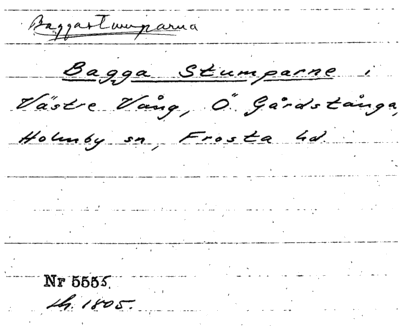 Baggastumparna
Bagga Stumparne i
Västre Vång, Ö. Gårdstånga,
Holmby sn, Frosta hd.
Nr 5555.
LH. 1805.